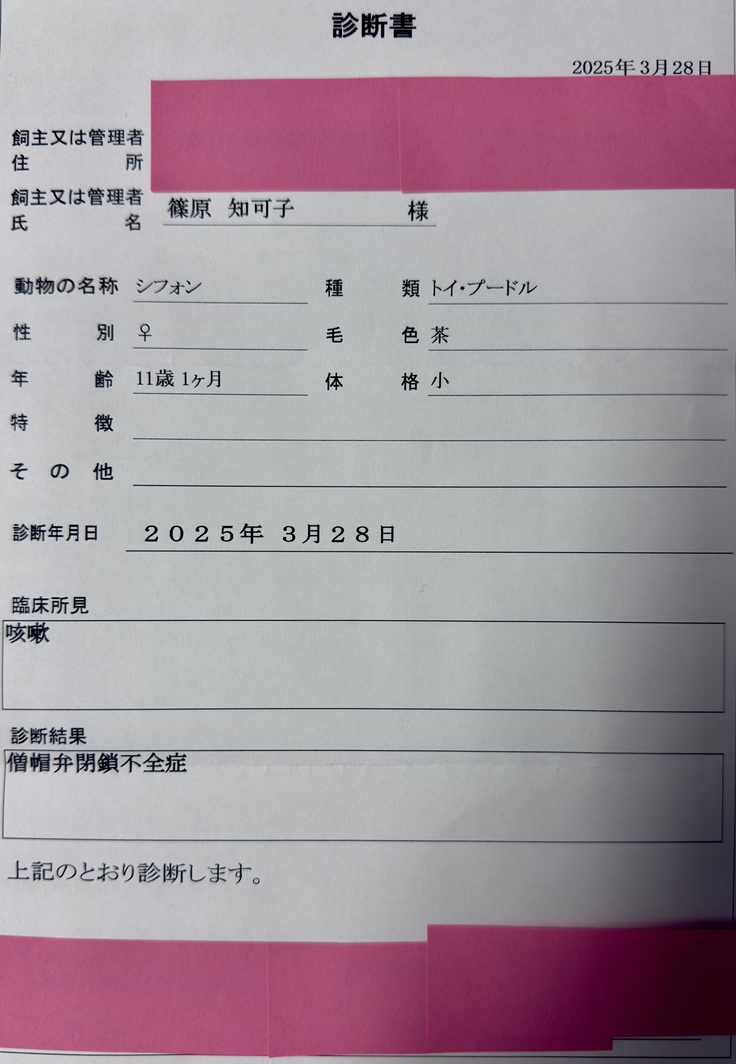 診断書
2025年3月28日
飼主又は管理者
住所
飼主又は管理者
氏名 篠原 知可子 様
動物の名称 シフォン 種類 トイ・プードル
性別 ♀ 毛色 茶
年齢 11歳 1ヶ月 体格 小
特徴
その他
診断年月日 2025年 3月28日
臨床所見
咳嗽
診断結果
僧帽弁閉鎖不全症
上記のとおり診断します。